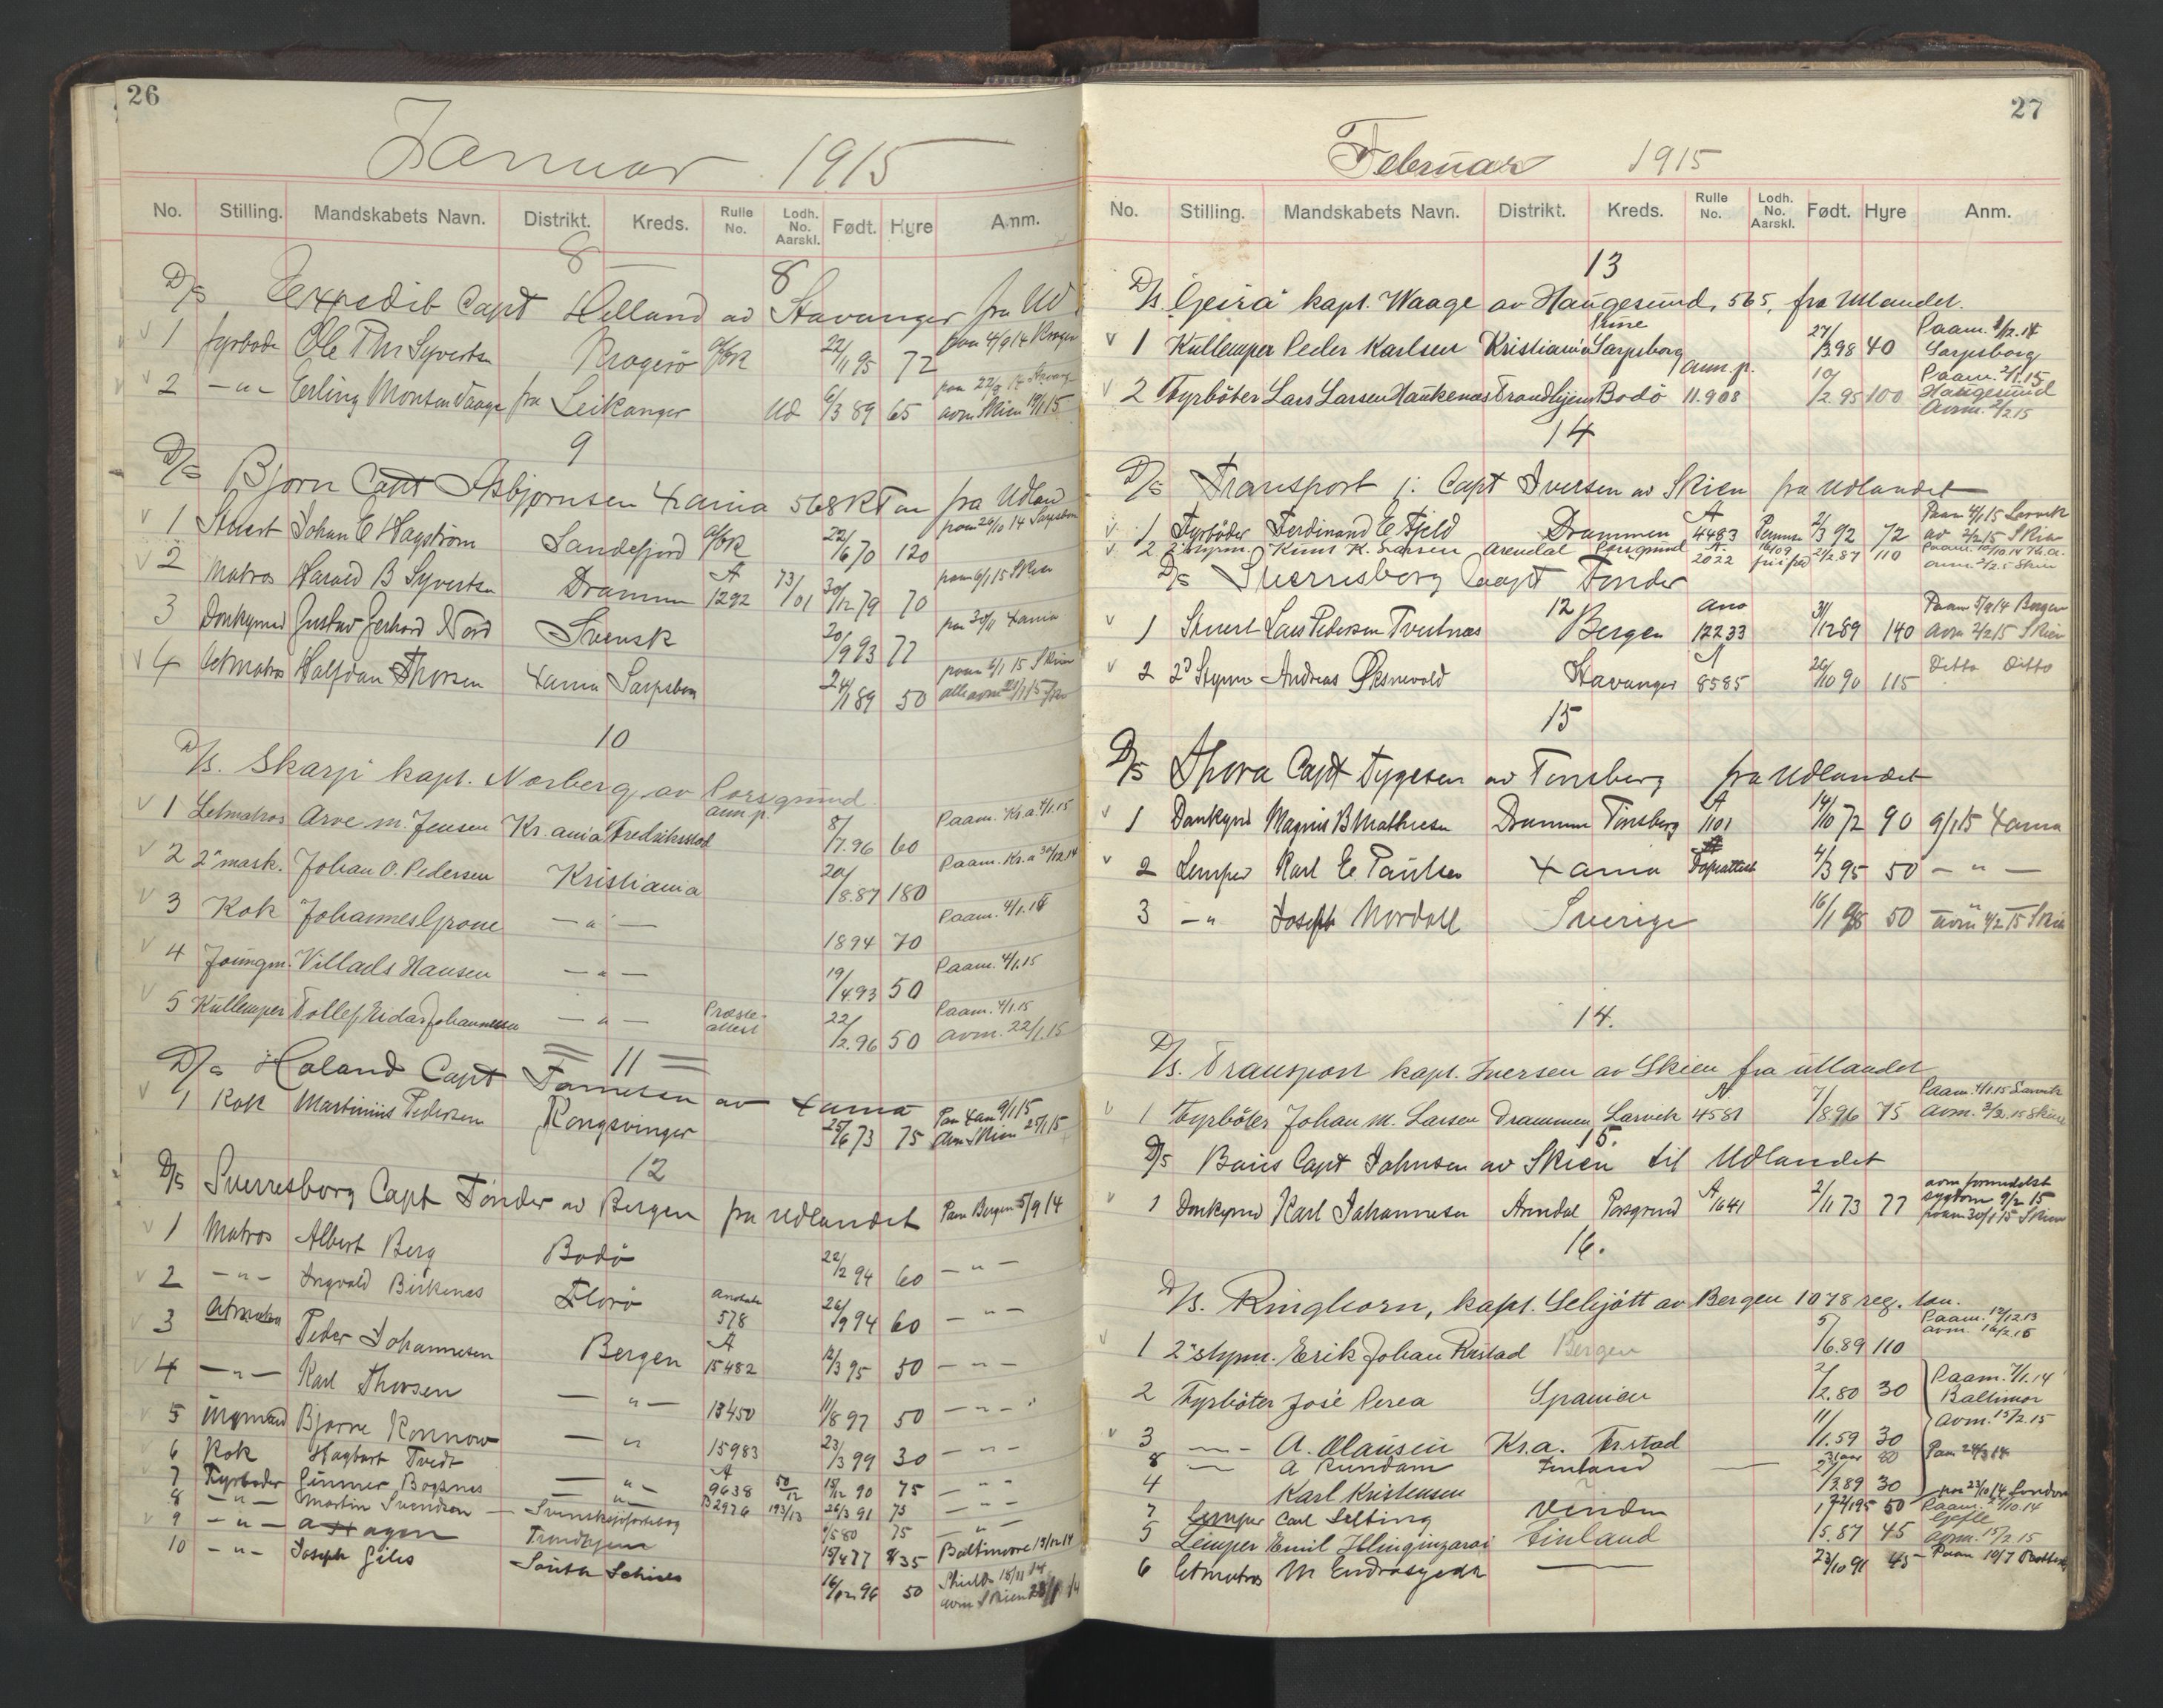 26
Januar 1915
No. Stilling. Mandskabets Navn. Distrikt. Kreds. Rulle No. Lodh. No. Aarskl. Født. Hyre Anm.
8 8
D/S Expedit Capt Helland av Stavanger fra Ud
1 fyrbøder Ole Thr Syvertsen Kragerø 22/11 95 72 paam 4/9 14
2 -"- Erling Monsen Vaage fra Leikanger Ud 6/3 89 65 avm Skien 19/1 15
9
D/S Bjørn Capt Asbjørnsen Xania 568 RT on fra Udland
1 Stuert Johan E Hagstrøm Sandefjord 22/6 70 120 paam 26/10 14 Sarpsborg
2 Matros Harald B Syvertsen Drammen A 1292 73/01 30/12 79 70 paam 6/1 15 Skien
3 Donkymd Gustav Gerhard Nord Svensk 20/9 93 77 paa 30/11 Xania
4 Letmatros Halfdan Thorsen Xania Sarpsborg 24/1 89 50 paam 6/1 15 Skien
10
D/S. Skarp kapt. Norberg av Porsgrund.
1 Letmatros Arve M. Jensen Kr.ania Fredrikstad ann p. 8/7.96 60 Paam. Kr.a. 4/1.15
2 2' mask. Johan O. Pedersen Kristiania 20/8.87 180 Paam. Kr.a 30/12.14
3 Kok Johannes Grone -"- 1894 70 Paam. 4/1.15
4 Joungm. Villads Hansen -"- 19/4.93 50 Paam. 4/1.15
5 Kullemper Tollef Eidar Johannessen -"- Præste-attest 22/2.96 50 Paam. 4/1.15 avm. 22/1.15
11
D/S Haland Capt Tønnesen av Xania
1 Kok Martinius Pedersen Kongsvinger 25/6 73 75 Paa Xan 9/1 15 Avm Skien 25/1 15
12
D/S Sverresborg Capt Tønder av Bergen fra Udlandet Paam Bergen 5/9 14
1 Matros Albert Berg Bodø 22/2 94 60 -"-
2 -"- Ingvald Birkenes Florø 578 26/9 94 60 -"-
3 Letmatros Peder Johannesen Bergen A 15482 12/3 95 50 -"-
4 -"- Karl Thorsen -"- 13450 11/8 97 50 -"-
5 Ungmand Bjarne Konnow -"- 15983 23/3 99 30 -"-
6 Kok Hagbart Tvedt
7 Fyrbøder Gunnar Bognes -"- A 9638 50/12 18/12 90 75 -"-
8 -"- Martin Svendsen B 2976 193/13 26/3 91 75 -"-
9 -"- A Hagen Trondhjem 75 -"-
10 -"- Joseph Giles South Schiels 16/12 96 50
27
Februar 1915
No. Stilling. Mandskabets Navn. Distrikt. Kreds. Rulle No. Lodh. No. Aarskl. Født. Hyre Anm.
13
D/S. "Geira" kapt. Waage av Haugesund, 565, fra Utlandet.
1 Kullemper Peder Karlsen Kristiania Sarpsborg ann. p. 27/3.98 40 Paam. 1/12.14 Sarpsborg
2 Fyrböter Lars Larsen Haukenæs Trondhjem Bodö 11.908 10/2.95 100 Paam. 2/1.15 Haugesund Avm. 2/2 15
14
D/S Transport Capt Iversen av Skien fra Udlandet
1 Fyrbøder Ferdinand E Fjeld Drammen A 4483 2/3 92 72 Paam 4/1 15 Larvik av 2/2 15 Skien
2 2. styrm. Knut K. Larsen Arendal Porsgrund A 2022 21/2.87 110
D/S Sverresborg Capt Tønder
12
1 Stuert Lars Pedersen Tveitnæs Bergen 12233 3/12 89 140 Paam 5/9 14 Bergen avm 2/2 15 Skien
2 2d Styrm Andreas Øksnevold Stavanger A 8585 20/10 90 115 Ditto Ditto
15
D/S Spera Capt Tygesen av Tønsberg fra Udlandet
1 Donkymd Magnus B Mathiesen Drammen Tønsberg A 1101 14/10 72 90 9/1 15 Xania
2 Lemper Karl E Paulsen Xania 4/3 95 50 -"-
3 -"- Joseph Nordall Sverige 16/1 98 50 avm 4/2 15 Skien
14.
D/S. Transport kapt. Iversen av Skien fra utlandet
1 Fyrböter Johan M. Larsen Drammen Larvik A 4581 7/8.96 75 Paam. 4/1.15 Larvik avm. 2/2.15 Skien
15.
D/S Baus Capt Johnsen av Skien til Udlandet
1 Donkymd Karl Johannesen Arendal Porsgrund A 1641 2/11 73 77 avm formedelst sygdom 9/2 15 paam 30/1 15 Skien
16.
D/S. Ringhorn, kapt. Schjött av Bergen 1078 reg. ton.
1 2' styrm. Erik Johan Ristad Bergen 5/6.89 110 Paam. 12/12.13 avm. 16/2.15
2 Fyrböter José Perea Spanien 2/2.80 30 Paam. 7/1.14 Baltimor avm. 15/2.15
3 -"- A. Olausen Kr.a. Frstad 11/1.59 30
8 -"- A Rundam Finland 31 aar 80 Paa 24/3 14
4 Karl Kristensen 27/3.89 30 paa 23/10 14 London
7 Lemper Carl Selting Venden 50 Paam. 27/10.14 Gefle
5 Lemper Emil Finland 15.87 45 avm. 15/2.15
6 Letmatros M 23/10 91 45 Paam 10/7